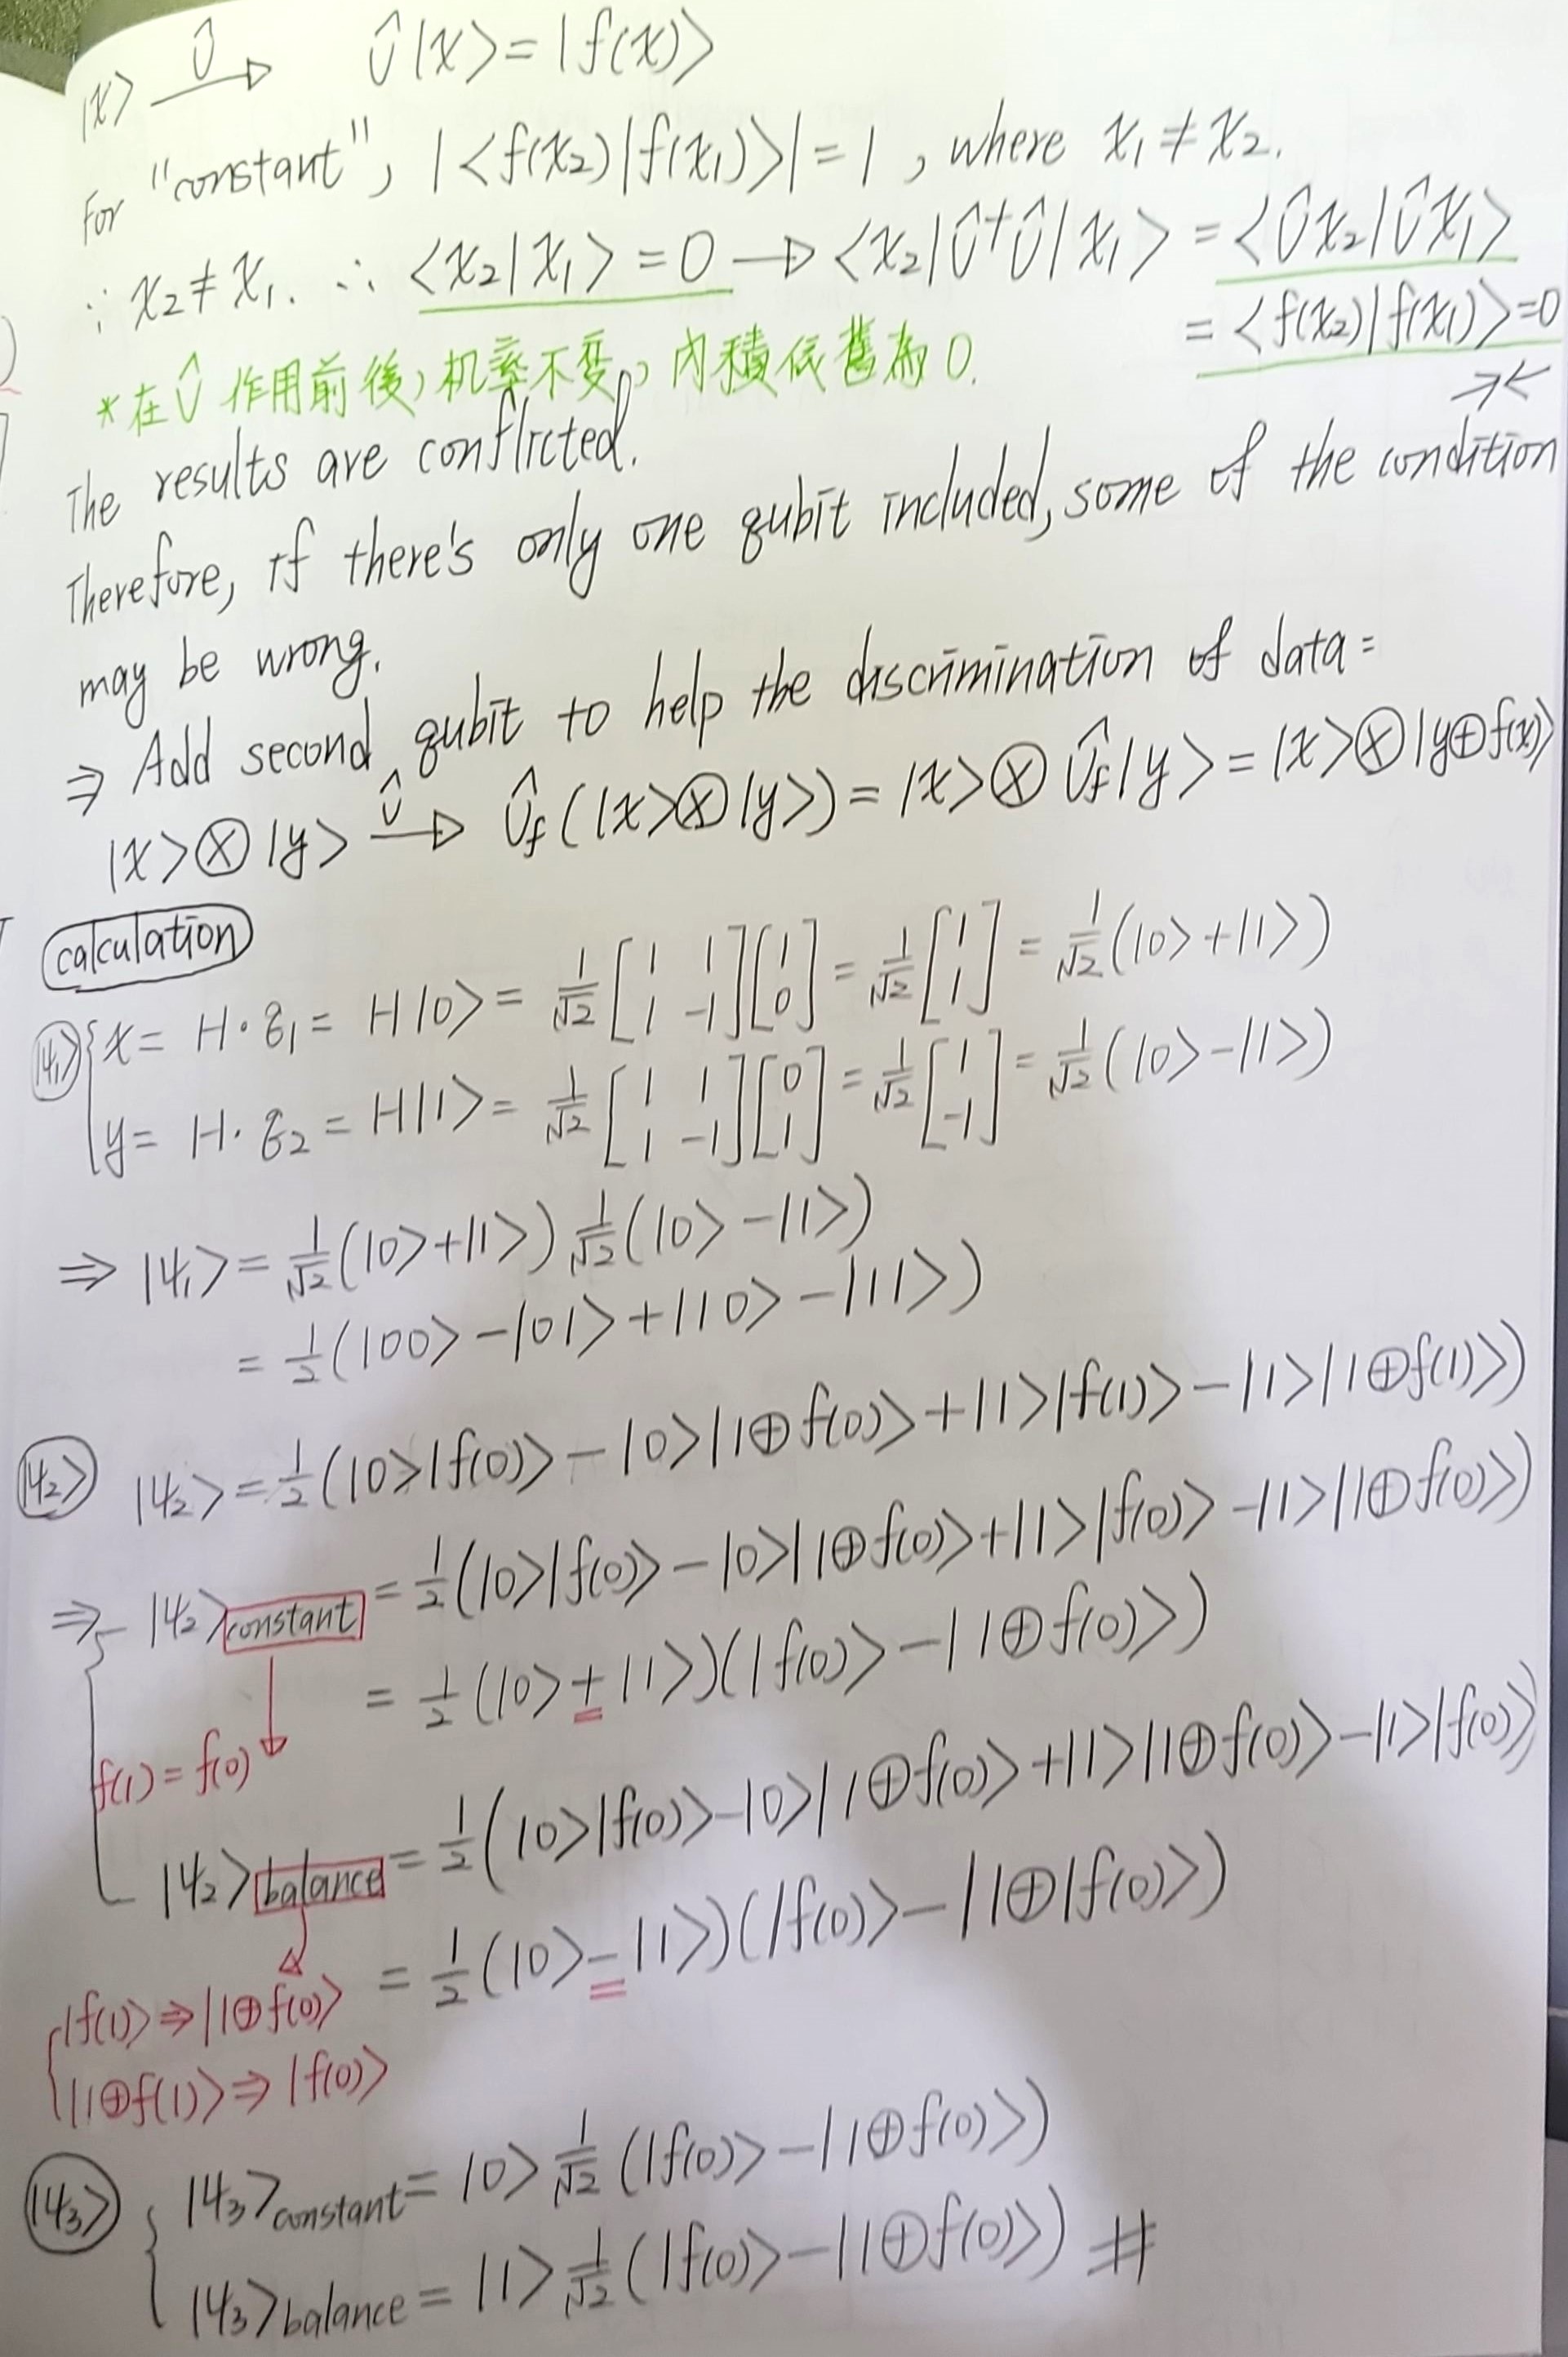 |x> —Û→ Û|x> = |f(x)>
For "constant", |<f(x₂)|f(x₁)>| = 1, where x₁ ≠ x₂.
∵ x₂ ≠ x₁. ∴ <x₂|x₁> = 0 → <x₂|Û†Û|x₁> = <Ûx₂|Ûx₁>
= <f(x₂)|f(x₁)> = 0
→←
*在Û作用前後,机率不变,內積依舊為0.
The results are conflicted.
Therefore, if there's only one qubit included, some of the condition
may be wrong.
⇒ Add second qubit to help the discrimination of data =
|x>⊗|y> —Û→ Û_f(|x>⊗|y>) = |x>⊗Û_f|y> = |x>⊗|y⊕f(x)>
calculation
|ψ₁> { x = H·q₁ = H|0> = 1/√2 [1 1; 1 -1][1; 0] = 1/√2 [1; 1] = 1/√2 (|0>+|1>)
y = H·q₂ = H|1> = 1/√2 [1 1; 1 -1][0; 1] = 1/√2 [1; -1] = 1/√2 (|0>-|1>)
⇒ |ψ₁> = 1/√2 (|0>+|1>) 1/√2 (|0>-|1>)
= 1/2 (|00>-|01>+|10>-|11>)
|ψ₂> |ψ₂> = 1/2 (|0>|f(0)>-|0>|1⊕f(0)>+|1>|f(1)>-|1>|1⊕f(1)>)
⇒ { |ψ₂>constant = 1/2 (|0>|f(0)>-|0>|1⊕f(0)>+|1>|f(0)>-|1>|1⊕f(0)>)
= 1/2 (|0>+|1>)(|f(0)>-|1⊕f(0)>)
f(1) = f(0)
|ψ₂>balance = 1/2 (|0>|f(0)>-|0>|1⊕f(0)>+|1>|1⊕f(0)>-|1>|f(0)>)
= 1/2 (|0>-|1>)(|f(0)>-|1⊕|f(0)>)
{ |f(1)> ⇒ |1⊕f(0)>
|1⊕f(1)> ⇒ |f(0)>
|ψ₃> { |ψ₃>constant = |0> 1/√2 (|f(0)>-|1⊕f(0)>)
|ψ₃>balance = |1> 1/√2 (|f(0)>-|1⊕f(0)>) #